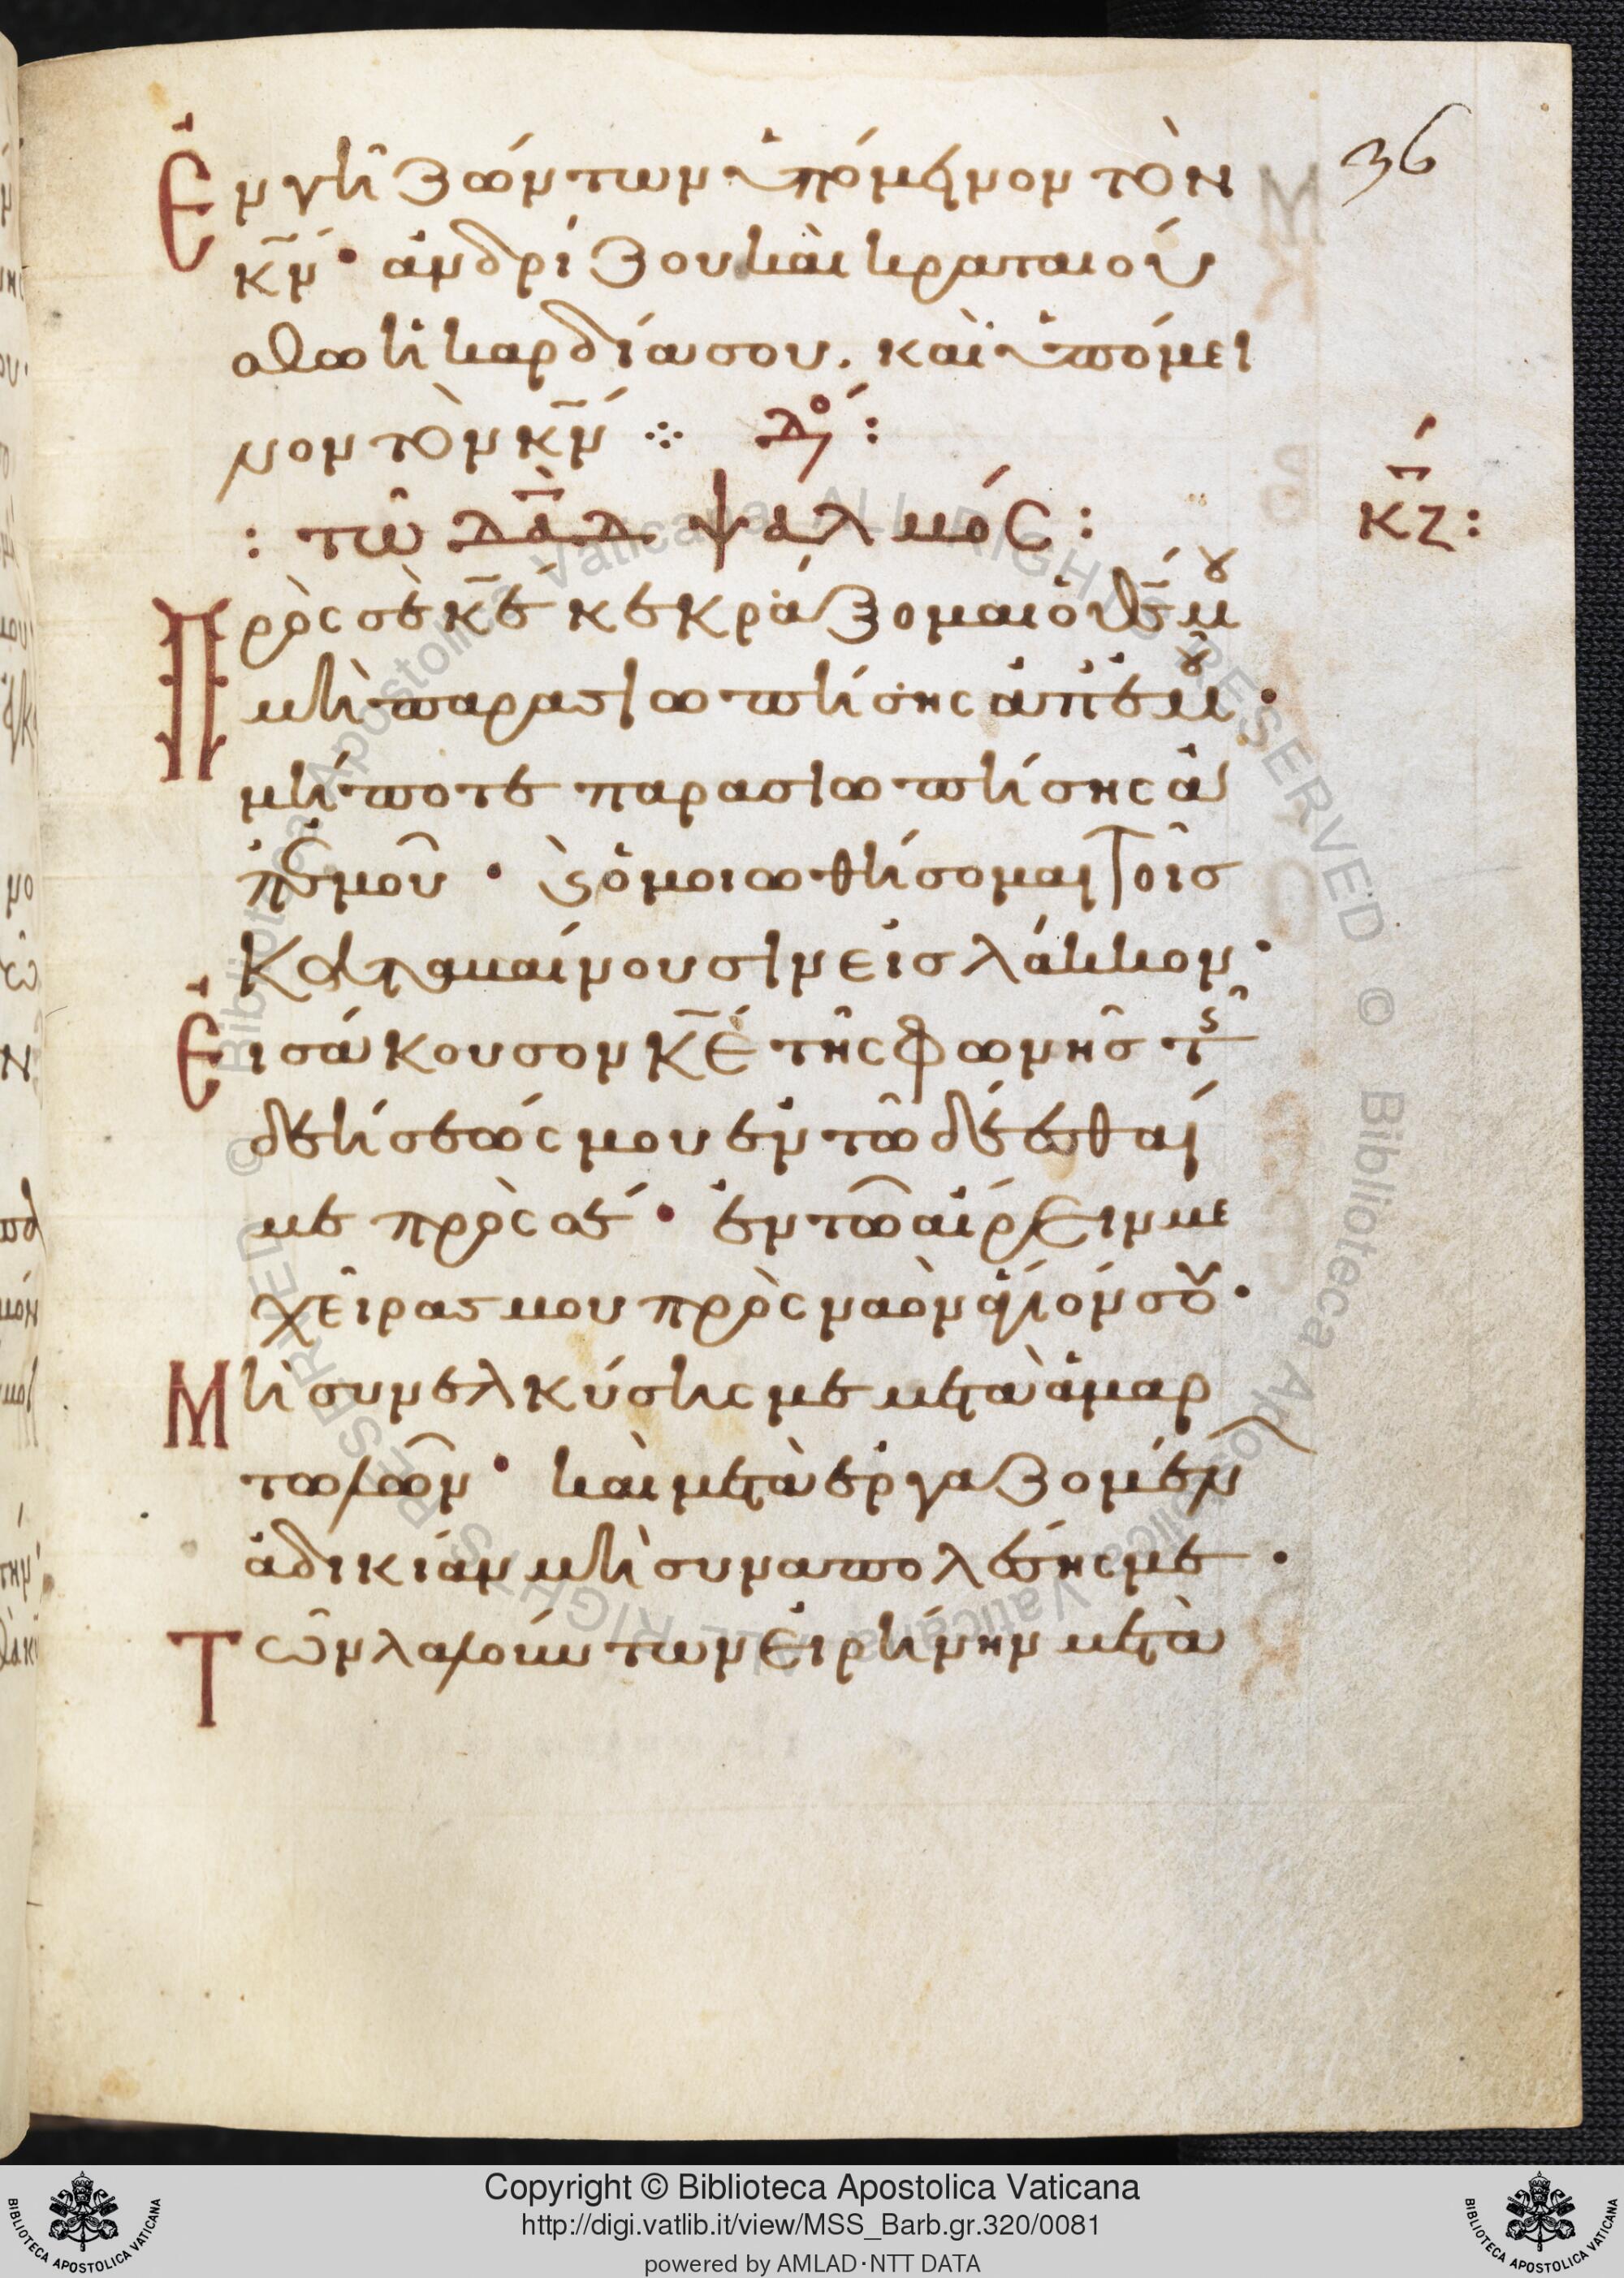 36
Ἐν γῆ ζώντων ὑπόμεινον τὸν
κ̅ν̅· ἀνδρίζου καὶ κραταιού
σθω ἡ καρδία σου. καὶ ὑπόμει
νον τὸν κ̅ν̅ ⁘ δο´:
: τῶ δ̅α̅δ̅ ψαλμός : κ̅ζ̅:
Πρὸς σὲ κ̅ε̅ κεκράξομαι ὁ θ̅ς̅ μου
μὴ παρασιωπήσης ἀπ' ἐμοῦ·
μήποτε παρασιωπήσης ἀ
π' ἐμοῦ· ϗ ὁμοιωθήσομαι τοῖς
καταβαίνουσιν εἰς λάκκον·
Εἰσάκουσον κ̅ε̅ τῆς φωνῆς τῆς
δεήσεώς μου ἐν τῶ δέεσθαί
με πρὸς σέ· ἐν τῶ αἴρειν με
χεῖρας μου πρὸς ναὸν ἅγιόν σου·
Μὴ συνελκύσης με μετὰ ἁμαρ
τωλῶν· καὶ μετὰ ἐργαζομένων
ἀδικίαν μὴ συναπολέσης με·
Τῶν λαλούντων εἰρήνην μετὰ
Copyright © Biblioteca Apostolica Vaticana
http://digi.vatlib.it/view/MSS_Barb.gr.320/0081
powered by AMLAD·NTT DATA